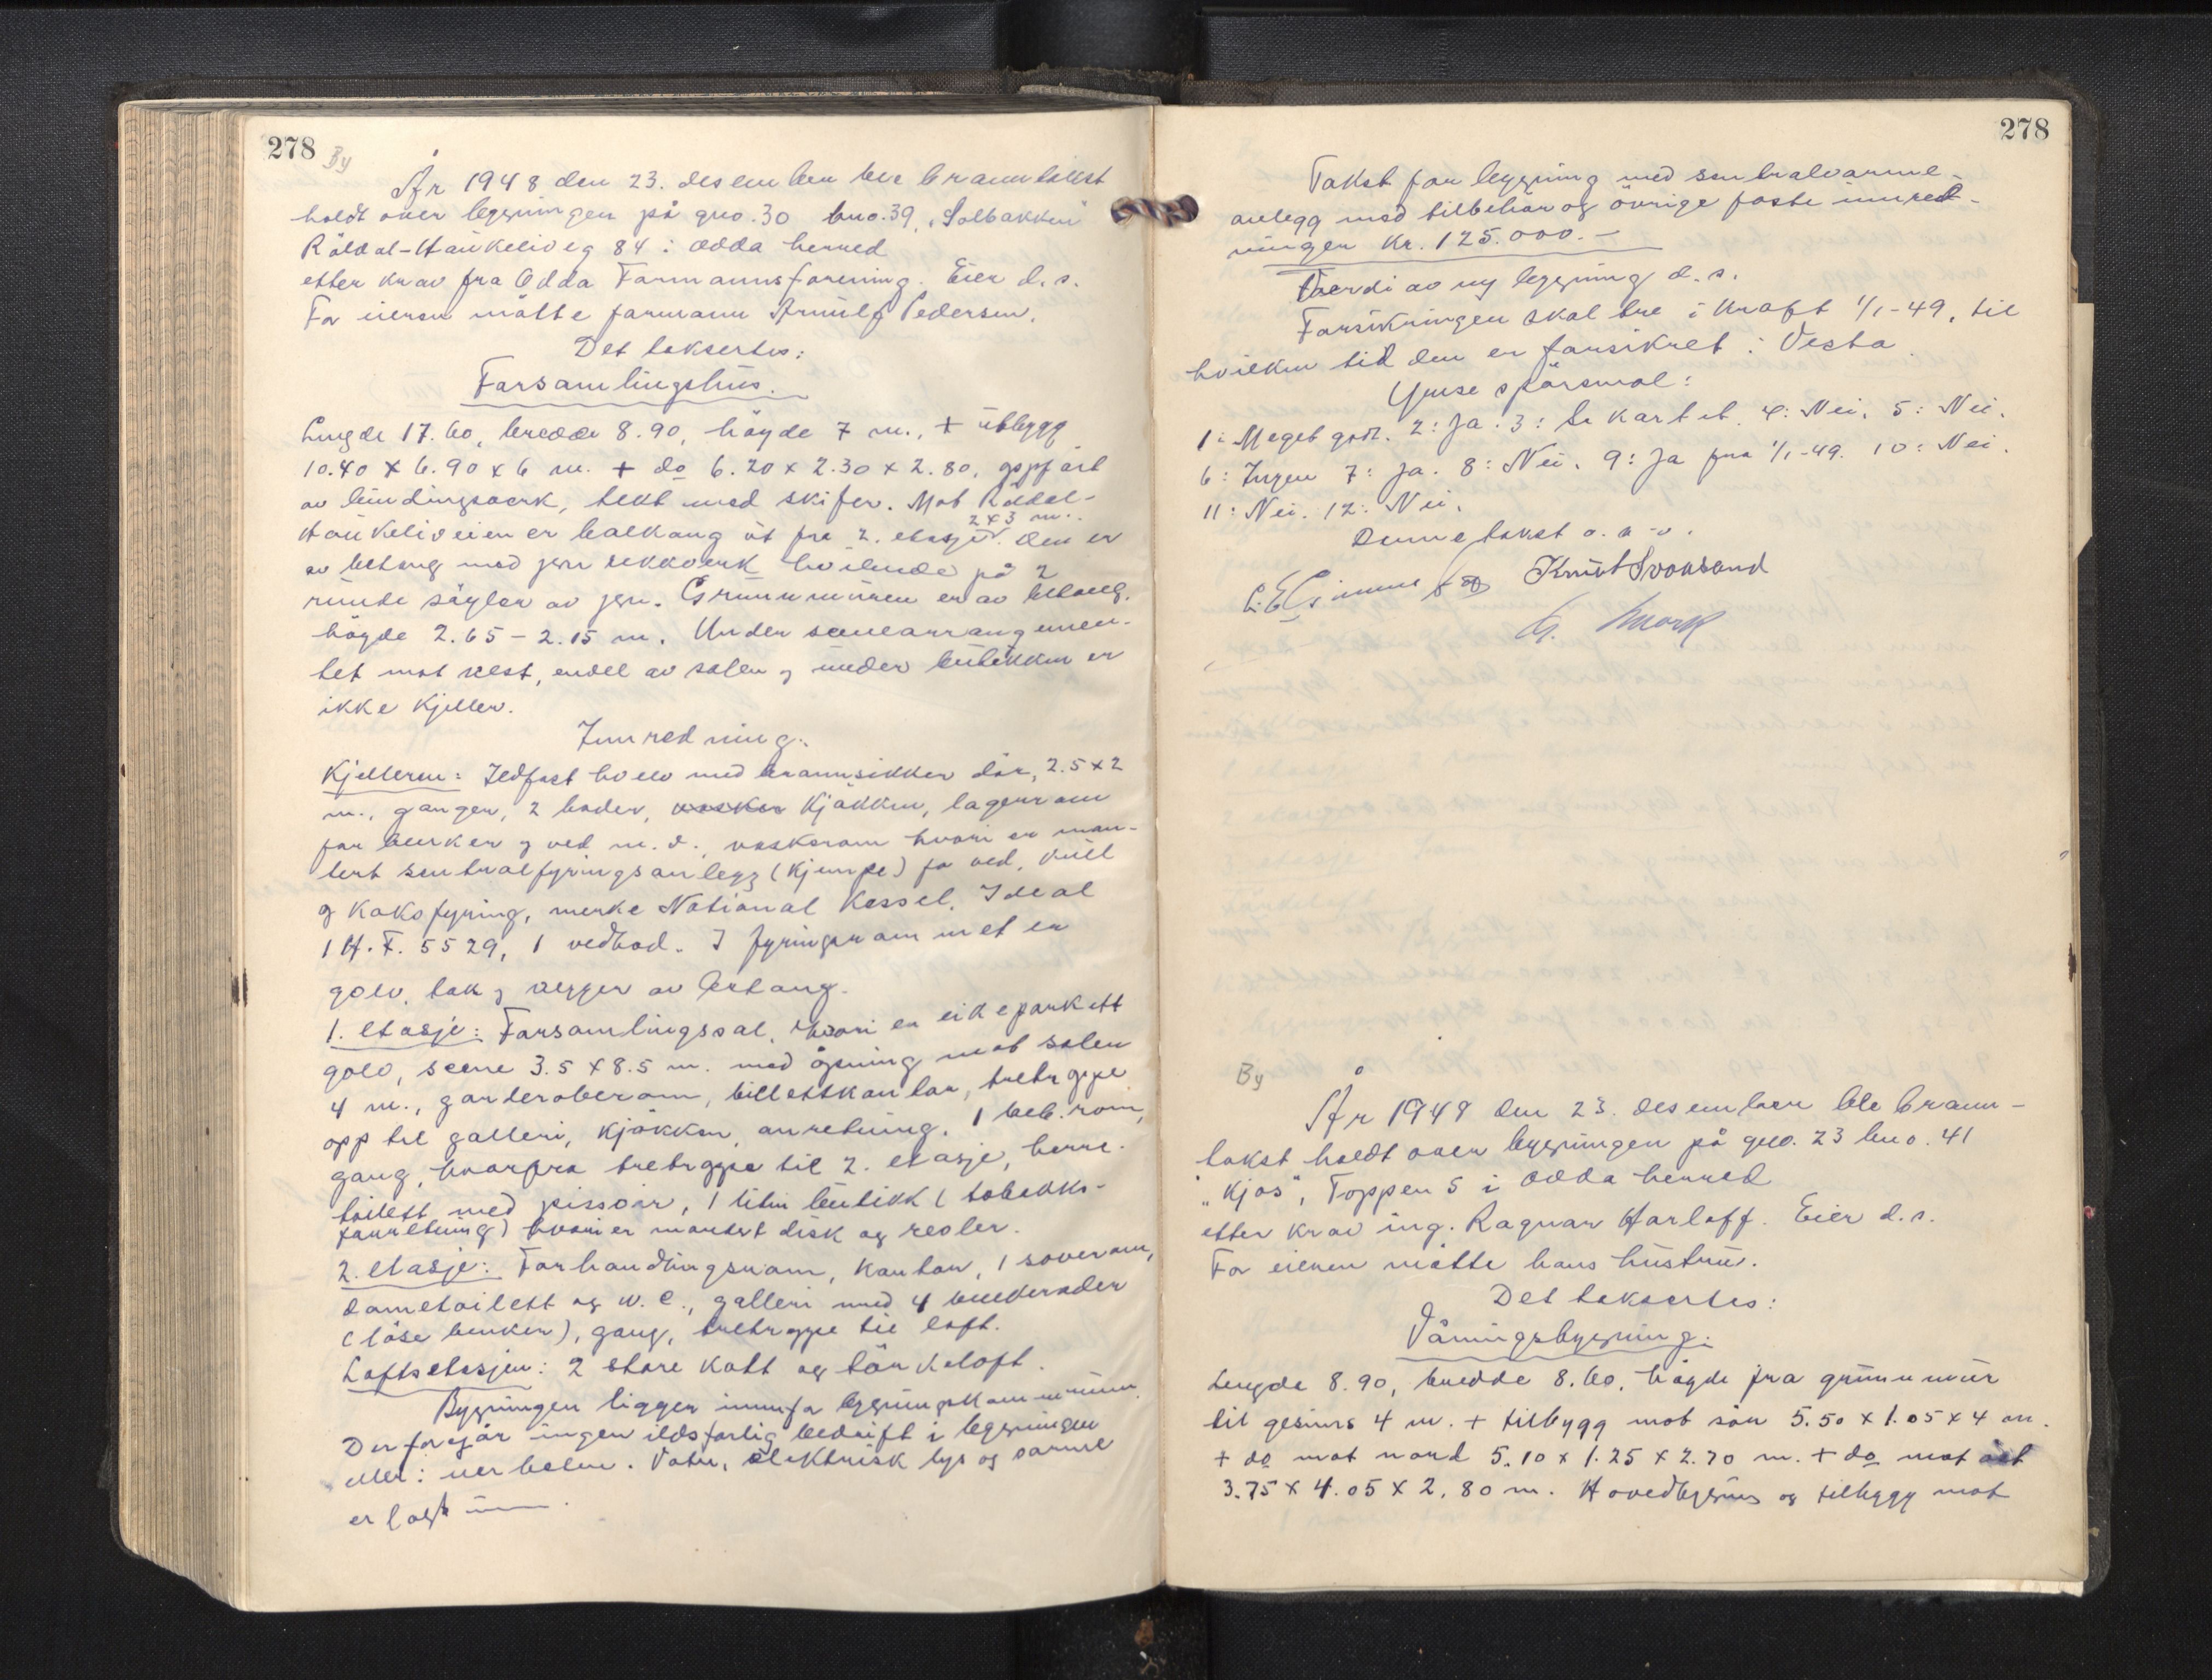 278 By
År 1948 den 23. desember ble branntakst
holdt over bygningen på gno. 30 bno. 39, "Solbakken"
Röldal-Haukeliveg 84 i Odda herred
etter krav fra Odda Formannsforening. Eier d. s.
For eieren møtte formann Arnulf Pedersen.
Det taksertes:
Forsamlingshus.
Lengde 17.60, bredde 8.90, höyde 7 m., + utbygg
10.40 x 6.90 x 6 m. + do 6.20 x 2.30 x 2.80, oppfört
av bindingsverk, tekt med skifer. Mot Röldal-
Haukeliveien er balkong ut fra 2. etasje 2x3 m. Den er
av betong med jern rekkverk hvilende på 2
runde söyler av jern. Grunnmuren er av betong,
höyde 2.65 - 2.15 m. Under scenearrangemen-
tet mot vest, endel av salen og under butikken er
ikke kjeller.
Innredning:
Kjelleren: Ildfast hvelv med brannsikker dör, 2.5 x 2
m., ganger, 2 boder, vasker kjökken, lagerrom
for benker og ved m. v., vaskerom hvori er mon-
tert sentralfyringsanlegg (kjempe) for ved, kull
og koksfyring, merke National Kessel, Ideal
1 H. F. 5529, 1 vedbod. I fyringsrommet er
golv, tak og vegger av betong.
1. etasje: Forsamlingssal, hvori er eikeparkett
golv, scene 3.5 x 8.5 m. med åpning mot salen
4 m., garderoberom, billettkontor, tretrappe
opp til galleri, kjökken, anretning, 1 beb. rom,
gang, hvorfra tretrappe til 2. etasje, herre-
toilett med pissoir, 1 liten butikk (tobakks-
forretning) hvori er montert disk og reoler.
2. etasje: Forhandlingsrom, kontor, 1 soverom,
dametoilett og W. C., galleri med 4 benkerader
(löse benker), gang, tretrappe til loft.
Loftsetasjen: 2 store kott og törkeloft.
Bygningen ligger innenfor bygningskommunen.
Der foregår ingen ildsfarlig bedrift i bygningen
eller i nerheten. Vatn, elektrisk lys og varme
er lagt inn.
278
Takst for bygning med sentralvarme-
anlegg med tilbehör og övrige faste innred-
ninger Kr. 125.000.-
Verdi av ny bygning d. s.
Forsikringen skal tre i kraft 1/1-49, til
hvilken tid den er forsikret i Vesta.
Ymse spörsmål:
1: Meget god. 2: Ja. 3: Se kartet. 4: Nei. 5: Nei.
6: Ingen 7: Ja. 8: Nei. 9: Ja fra 1/1-49. 10: Nei.
11: Nei. 12: Nei.
Denne takst o. s. v.
Knut Svonsand
By
År 1948 den 23. desember ble brann-
takst holdt over bygningen på gno. 23 bno. 41
"Kjos", Toppen 5 i Odda herred
etter krav ing. Ragnar Harloff. Eier d. s.
For eieren møtte hans hustru.
Det taksertes:
Våningsbygning:
Lengde 8.90, bredde 8.60, höyde fra grunnmur
til gesims 4 m. + tilbygg mot sör 5.50 x 1.05 x 4 m.
+ do mot nord 5.10 x 1.25 x 2.70 m. + do mot öst
3.75 x 4.05 x 2.80 m. Hovedbygning og tilbygg mot